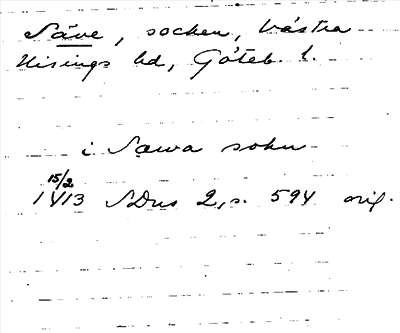 Säve, socken, Västra
Hisings hd, Göteb. l.
i Sawa sokn
15/2
1413 SDns 2, s. 594 orig.